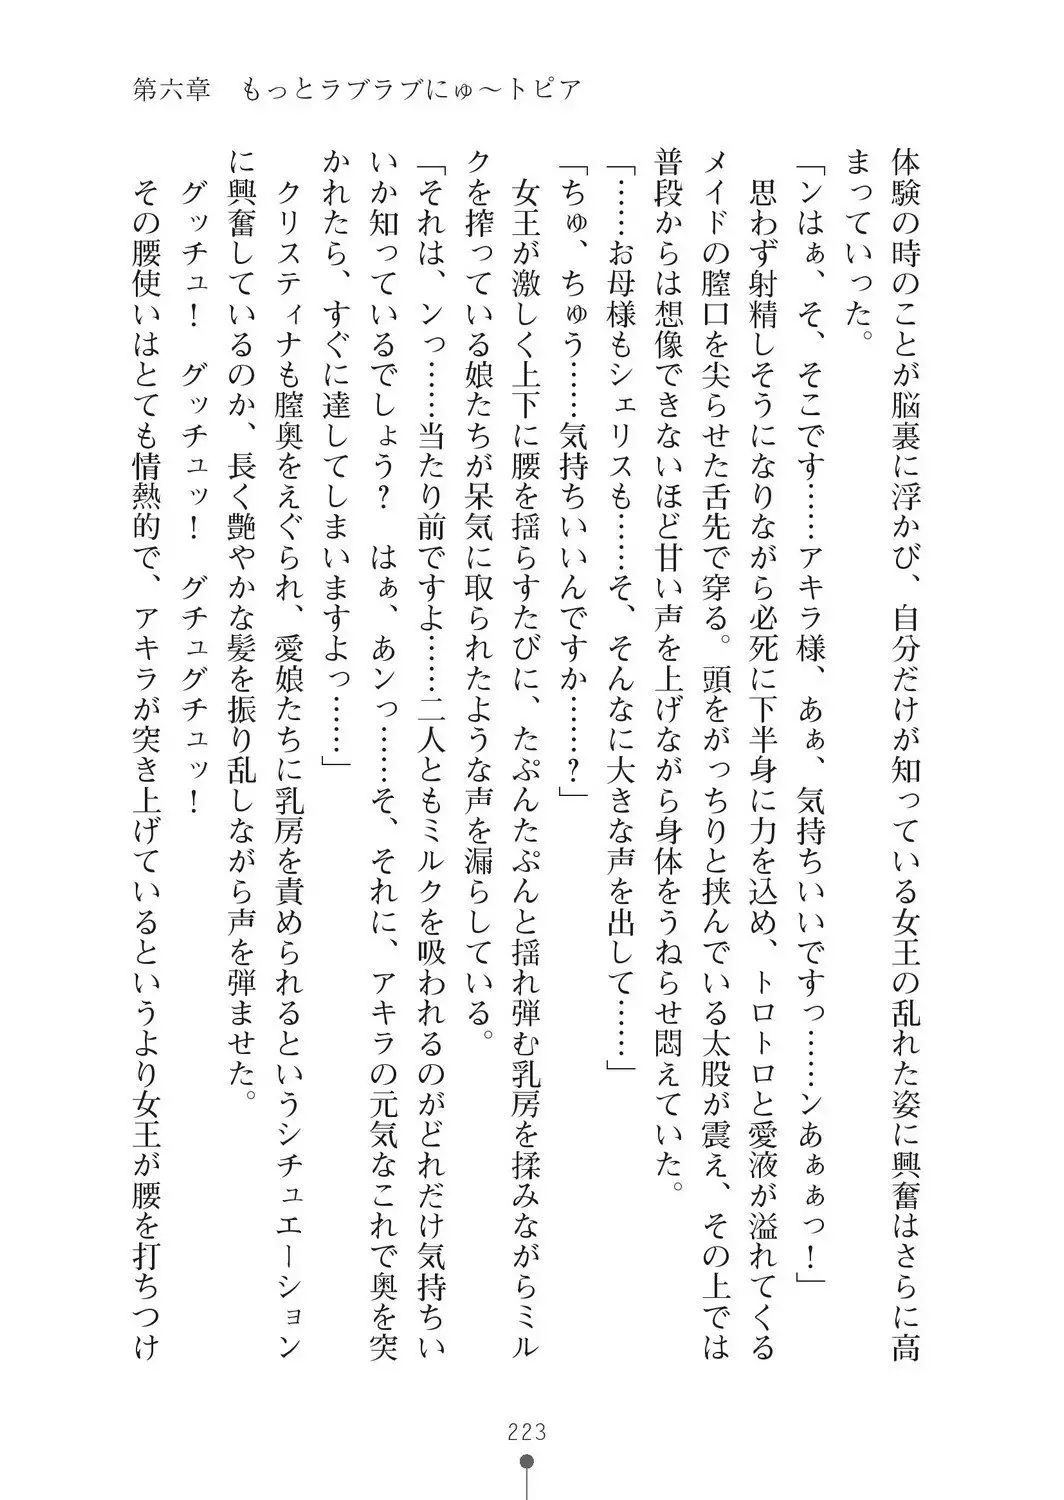 第六章　もっとラブラブにゅ～トピア
体験の時のことが脳裏に浮かび、自分だけが知っている女王の乱れた姿に興奮はさらに高
まっていった。
「ンはぁ、そ、そこです……アキラ様、あぁ、気持ちいいですっ……ンあぁぁっ！」
　思わず射精しそうになりながら必死に下半身に力を込め、トロトロと愛液が溢れてくる
メイドの膣口を尖らせた舌先で穿る。頭をがっちりと挟んでいる太股が震え、その上では
普段からは想像できないほど甘い声を上げながら身体をうねらせ悶えていた。
「……お母様もシェリスも……そ、そんなに大きな声を出して……」
「ちゅ、ちゅう……気持ちいいんですか……？」
　女王が激しく上下に腰を揺らすたびに、たぷんたぷんと揺れ弾む乳房を揉みながらミル
クを搾っている娘たちが呆気に取られたような声を漏らしている。
「それは、ンっ……当たり前ですよ……二人ともミルクを吸われるのがどれだけ気持ちい
いか知っているでしょう？　はぁ、あンっ……そ、それに、アキラの元気なこれで奥を突
かれたら、すぐに達してしまいますよっ……」
　クリスティナも膣奥をえぐられ、愛娘たちに乳房を責められるというシチュエーション
に興奮しているのか、長く艶やかな髪を振り乱しながら声を弾ませた。
　グッチュ！　グッチュッ！　グチュグチュッ！
　その腰使いはとても情熱的で、アキラが突き上げているというより女王が腰を打ちつけ
223